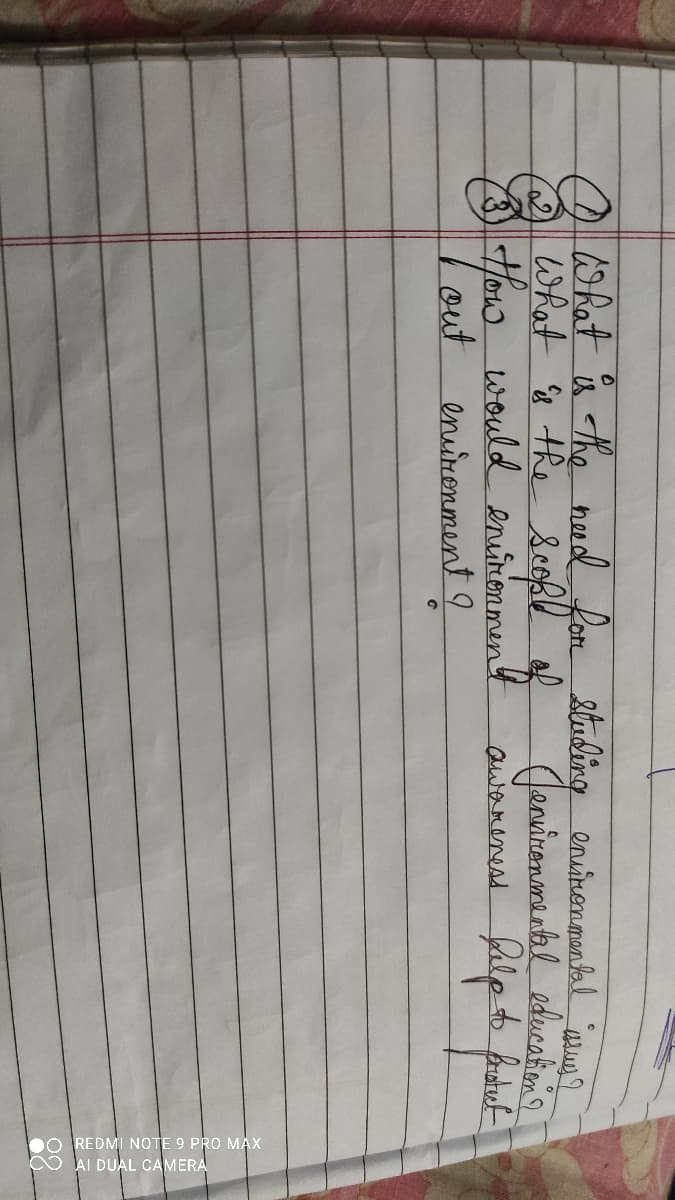 ① What is the need for studing environmental issues?
② What is the scope of environmental education?
③ How would environment awareness help to protect
out environment?
REDMI NOTE 9 PRO MAX
AI DUAL CAMERA